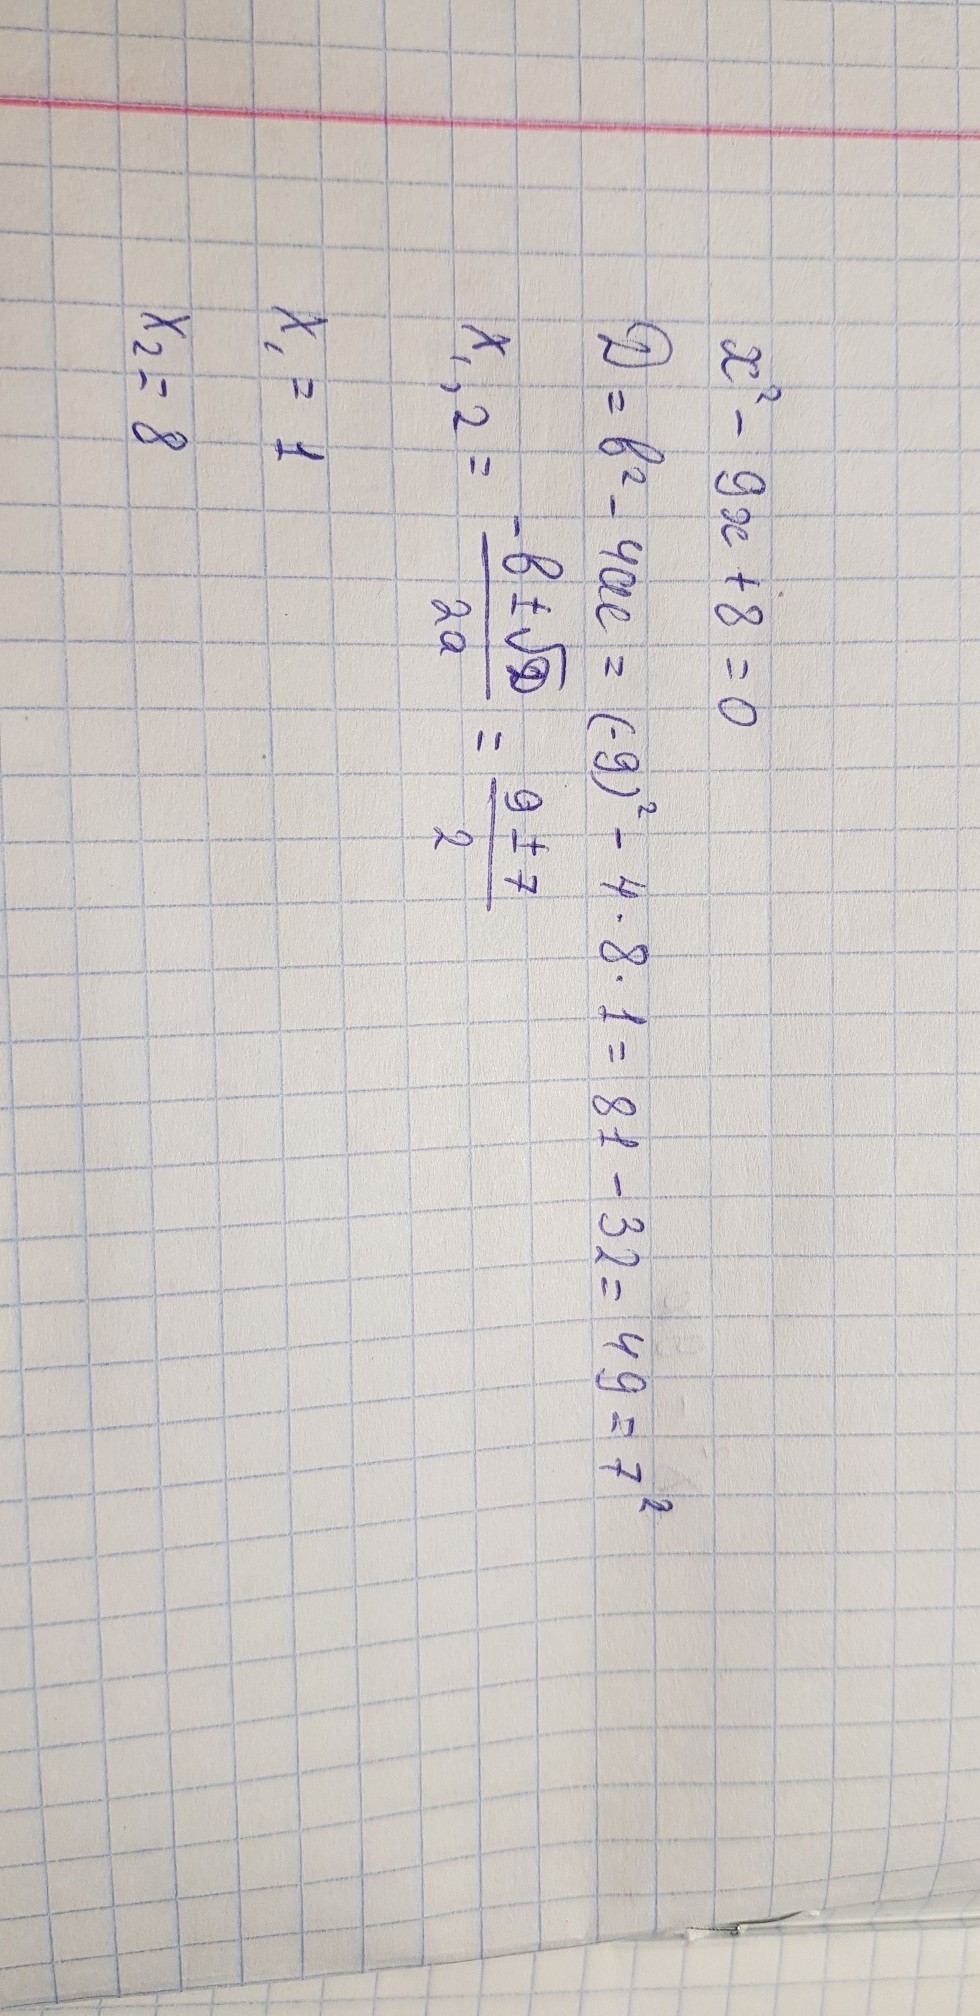 x² - 9x + 8 = 0
D = b² - 4ac = (-9)² - 4 · 8 · 1 = 81 - 32 = 49 = 7²
x₁,₂ = (-b ± √D)/(2a) = (9 ± 7)/2
x₁ = 1
x₂ = 8